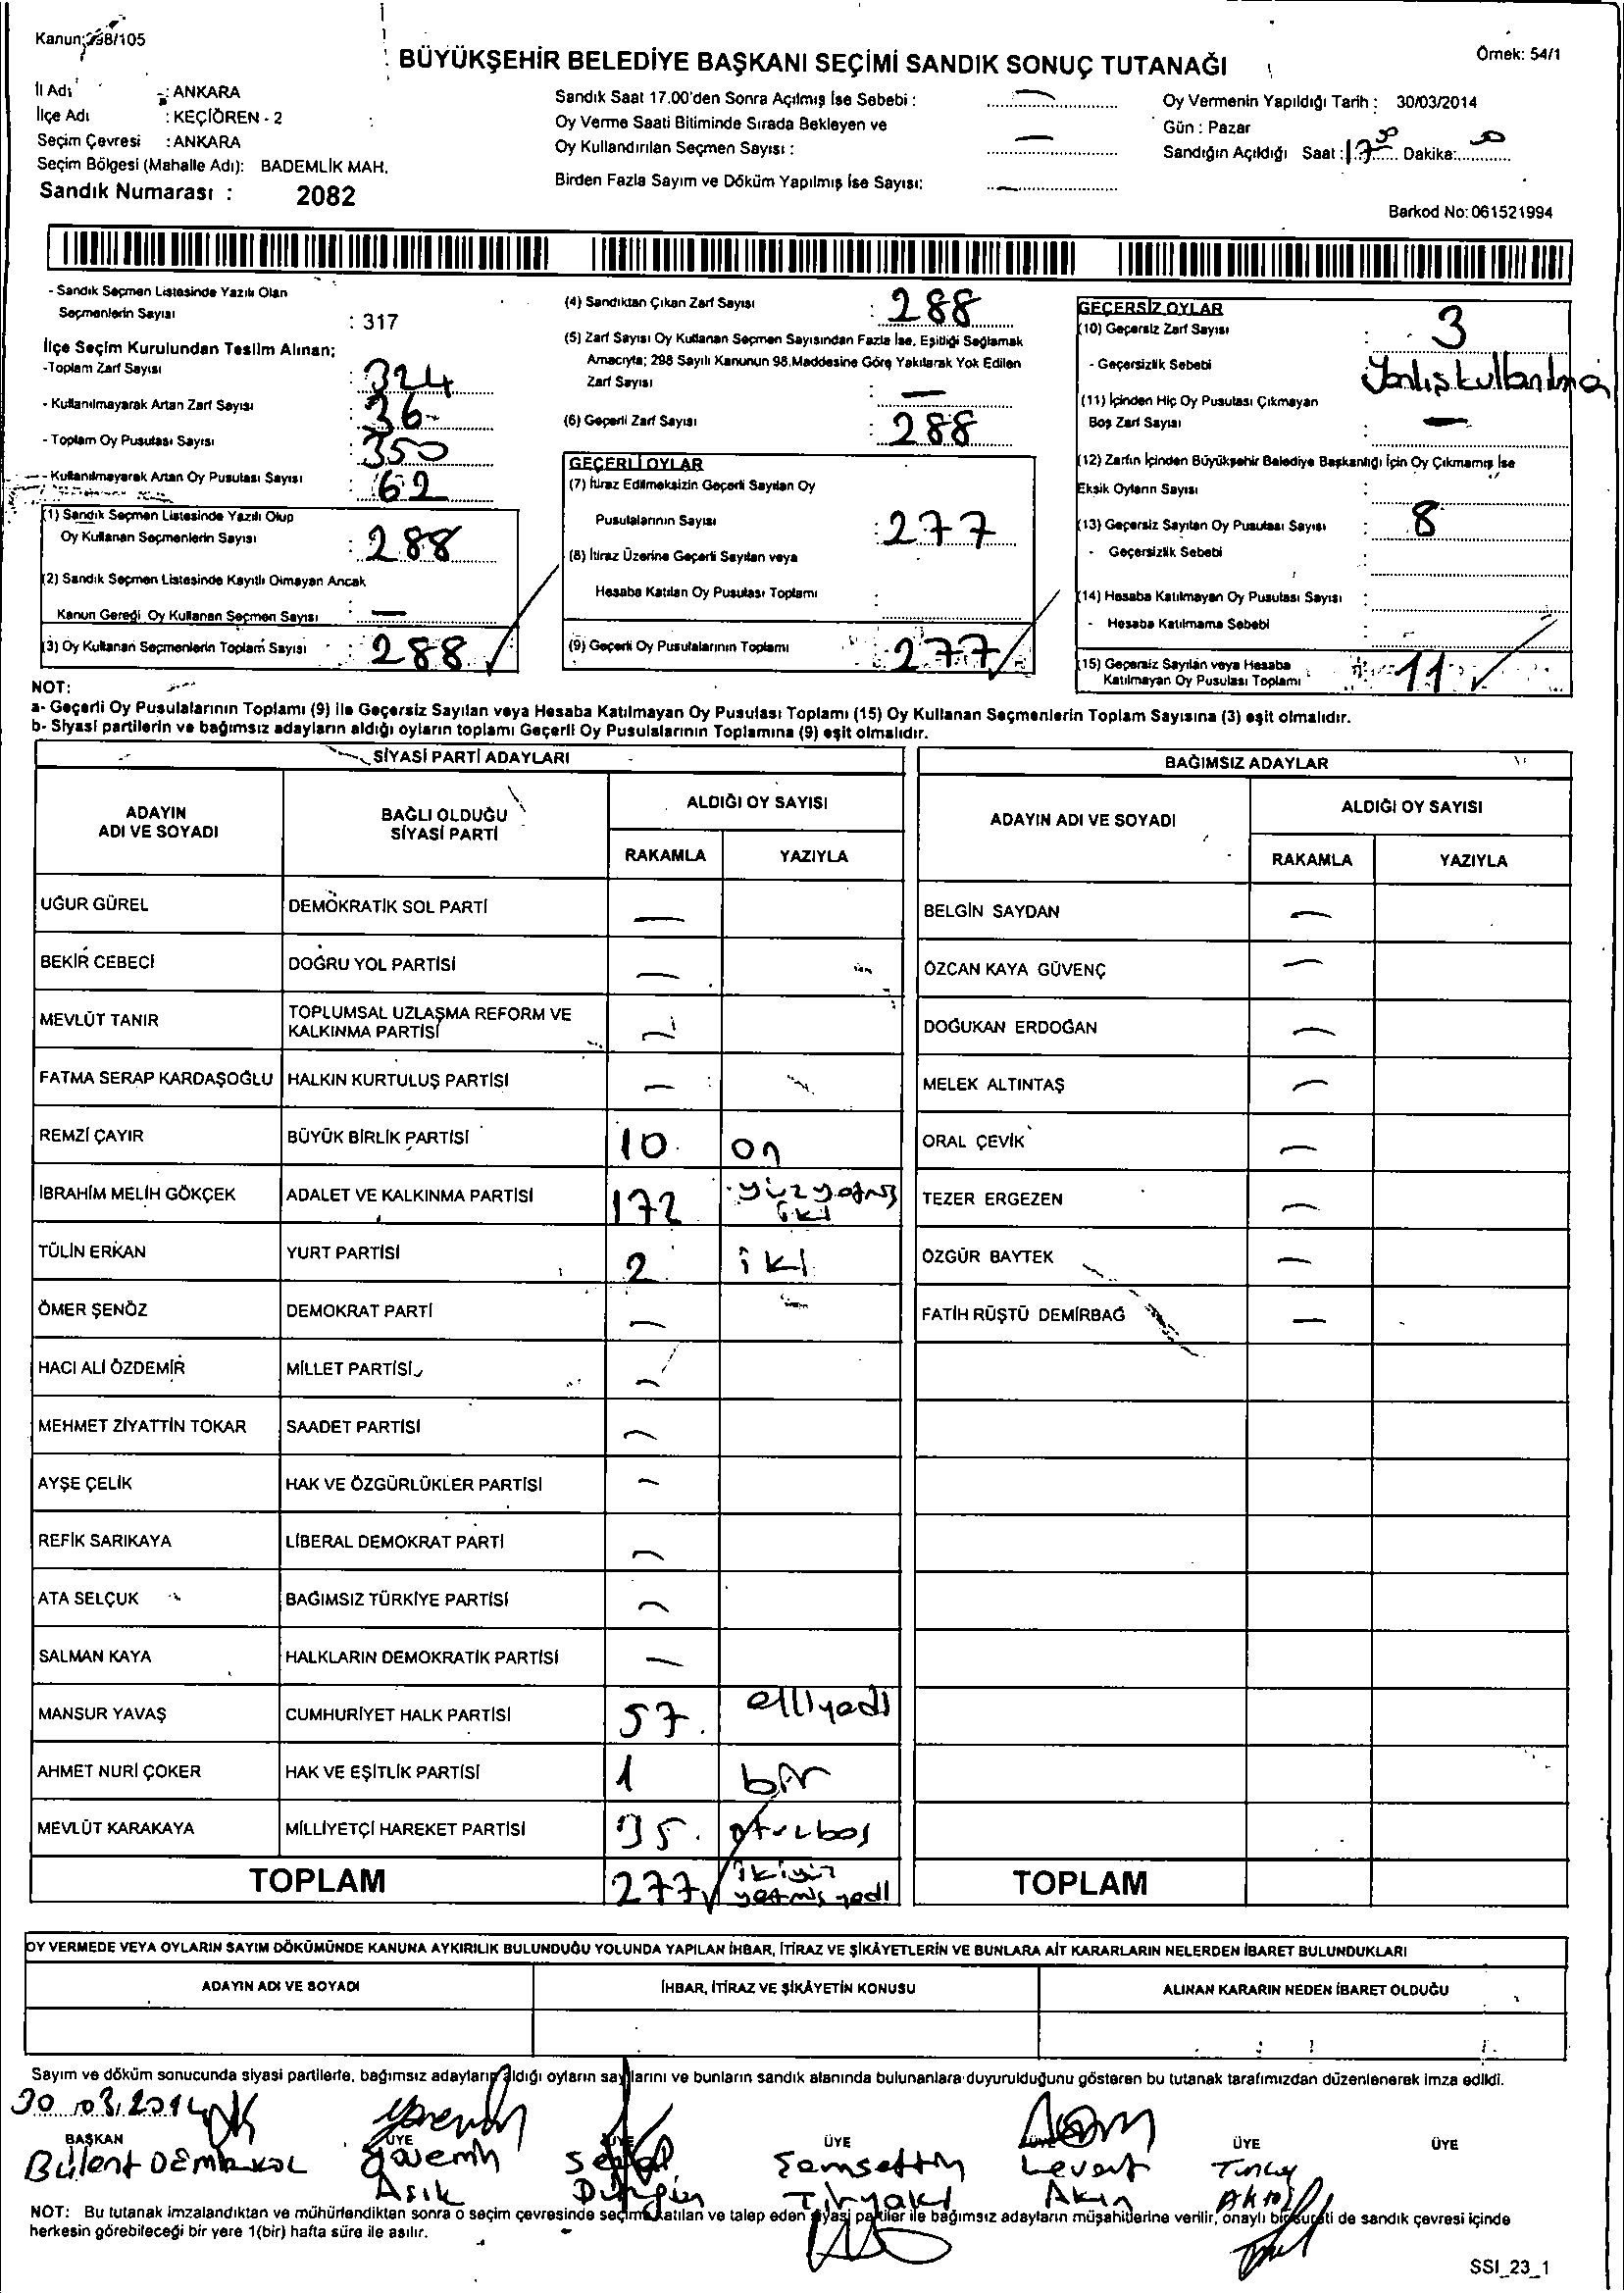 Kanun:298/105
BÜYÜKŞEHİR BELEDİYE BAŞKANI SEÇİMİ SANDIK SONUÇ TUTANAĞI
Örnek: 54/1
İl Adı : ANKARA
İlçe Adı : KEÇİÖREN - 2
Seçim Çevresi : ANKARA
Seçim Bölgesi (Mahalle Adı): BADEMLİK MAH.
Sandık Numarası : 2082
Sandık Saat 17.00'den Sonra Açılmış İse Sebebi : —
Oy Verme Saati Bitiminde Sırada Bekleyen ve
Oy Kullandırılan Seçmen Sayısı : —
Birden Fazla Sayım ve Döküm Yapılmış İse Sayısı: —
Oy Vermenin Yapıldığı Tarih : 30/03/2014
Gün : Pazar
Sandığın Açıldığı Saat : 17 Dakika:
Barkod No: 061521994
- Sandık Seçmen Listesinde Yazılı Olan
Seçmenlerin Sayısı : 317
İlçe Seçim Kurulundan Teslim Alınan;
-Toplam Zarf Sayısı : 324
- Kullanılmayarak Artan Zarf Sayısı : 36
- Toplam Oy Pusulası Sayısı : 350
- Kullanılmayarak Artan Oy Pusulası Sayısı : 62
(1) Sandık Seçmen Listesinde Yazılı Olup
Oy Kullanan Seçmenlerin Sayısı : 288
(2) Sandık Seçmen Listesinde Kayıtlı Olmayan Ancak
Kanun Gereği Oy Kullanan Seçmen Sayısı : —
(3) Oy Kullanan Seçmenlerin Toplam Sayısı : 288
(4) Sandıktan Çıkan Zarf Sayısı : 288
(5) Zarf Sayısı Oy Kullanan Seçmen Sayısından Fazla İse, Eşitliği Sağlamak
Amacıyla; 298 Sayılı Kanunun 98.Maddesine Göre Yakılarak Yok Edilen
Zarf Sayısı : —
(6) Geçerli Zarf Sayısı : 288
GEÇERLİ OYLAR
(7) İtiraz Edilmeksizin Geçerli Sayılan Oy
Pusulalarının Sayısı : 277
(8) İtiraz Üzerine Geçerli Sayılan veya
Hesaba Katılan Oy Pusulası Toplamı :
(9) Geçerli Oy Pusulalarının Toplamı : 277
GEÇERSİZ OYLAR
(10) Geçersiz Zarf Sayısı : 3
- Geçersizlik Sebebi : Yanlış kullanılma
(11) İçinden Hiç Oy Pusulası Çıkmayan
Boş Zarf Sayısı : —
(12) Zarfın İçinden Büyükşehir Belediye Başkanlığı İçin Oy Çıkmamış İse
Eksik Oyların Sayısı :
(13) Geçersiz Sayılan Oy Pusulası Sayısı : 8
- Geçersizlik Sebebi
(14) Hesaba Katılmayan Oy Pusulası Sayısı :
- Hesaba Katılmama Sebebi
(15) Geçersiz Sayılan veya Hesaba
Katılmayan Oy Pusulası Toplamı : 11
NOT:
a- Geçerli Oy Pusulalarının Toplamı (9) ile Geçersiz Sayılan veya Hesaba Katılmayan Oy Pusulası Toplamı (15) Oy Kullanan Seçmenlerin Toplam Sayısına (3) eşit olmalıdır.
b- Siyasi partilerin ve bağımsız adayların aldığı oyların toplamı Geçerli Oy Pusulalarının Toplamına (9) eşit olmalıdır.
SİYASİ PARTİ ADAYLARI
ADAYIN ADI VE SOYADI BAĞLI OLDUĞU SİYASİ PARTİ ALDIĞI OY SAYISI
RAKAMLA YAZIYLA
UĞUR GÜREL DEMOKRATİK SOL PARTİ —
BEKİR CEBECİ DOĞRU YOL PARTİSİ —
MEVLÜT TANIR TOPLUMSAL UZLAŞMA REFORM VE KALKINMA PARTİSİ —
FATMA SERAP KARDAŞOĞLU HALKIN KURTULUŞ PARTİSİ —
REMZİ ÇAYIR BÜYÜK BİRLİK PARTİSİ 10 on
İBRAHİM MELİH GÖKÇEK ADALET VE KALKINMA PARTİSİ 172 yüzyetmiş iki
TÜLİN ERKAN YURT PARTİSİ 2 iki
ÖMER ŞENÖZ DEMOKRAT PARTİ —
HACI ALİ ÖZDEMİR MİLLET PARTİSİ —
MEHMET ZİYATTİN TOKAR SAADET PARTİSİ —
AYŞE ÇELİK HAK VE ÖZGÜRLÜKLER PARTİSİ —
REFİK SARIKAYA LİBERAL DEMOKRAT PARTİ —
ATA SELÇUK BAĞIMSIZ TÜRKİYE PARTİSİ —
SALMAN KAYA HALKLARIN DEMOKRATİK PARTİSİ —
MANSUR YAVAŞ CUMHURİYET HALK PARTİSİ 57 elliyedi
AHMET NURİ ÇOKER HAK VE EŞİTLİK PARTİSİ 1 bir
MEVLÜT KARAKAYA MİLLİYETÇİ HAREKET PARTİSİ 35 otuzbeş
TOPLAM 277 ikiyüz yetmiş yedi
BAĞIMSIZ ADAYLAR
ADAYIN ADI VE SOYADI ALDIĞI OY SAYISI
RAKAMLA YAZIYLA
BELGİN SAYDAN —
ÖZCAN KAYA GÜVENÇ —
DOĞUKAN ERDOĞAN —
MELEK ALTINTAŞ —
ORAL ÇEVİK —
TEZER ERGEZEN —
ÖZGÜR BAYTEK —
FATİH RÜŞTÜ DEMİRBAĞ —
TOPLAM
OY VERMEDE VEYA OYLARIN SAYIM DÖKÜMÜNDE KANUNA AYKIRILIK BULUNDUĞU YOLUNDA YAPILAN İHBAR, İTİRAZ VE ŞİKÂYETLERİN VE BUNLARA AİT KARARLARIN NELERDEN İBARET BULUNDUKLARI
ADAYIN ADI VE SOYADI İHBAR, İTİRAZ VE ŞİKÂYETİN KONUSU ALINAN KARARIN NEDEN İBARET OLDUĞU
Sayım ve döküm sonucunda siyasi partilerle, bağımsız adayların aldığı oyların sayılarını ve bunların sandık alanında bulunanlara duyurulduğunu gösteren bu tutanak tarafımızdan düzenlenerek imza edildi.
30.03.2014
BAŞKAN ÜYE ÜYE ÜYE ÜYE ÜYE ÜYE
Bülent DEMİRKOL Şamsettin Levent
Aşık Tiryaki Akın
NOT: Bu tutanak imzalandıktan ve mühürlendikten sonra o seçim çevresinde seçime katılan ve talep eden siyasi partiler ile bağımsız adayların müşahitlerine verilir, onaylı bir sureti de sandık çevresi içinde
herkesin görebileceği bir yere 1(bir) hafta süre ile asılır.
SSI_23_1